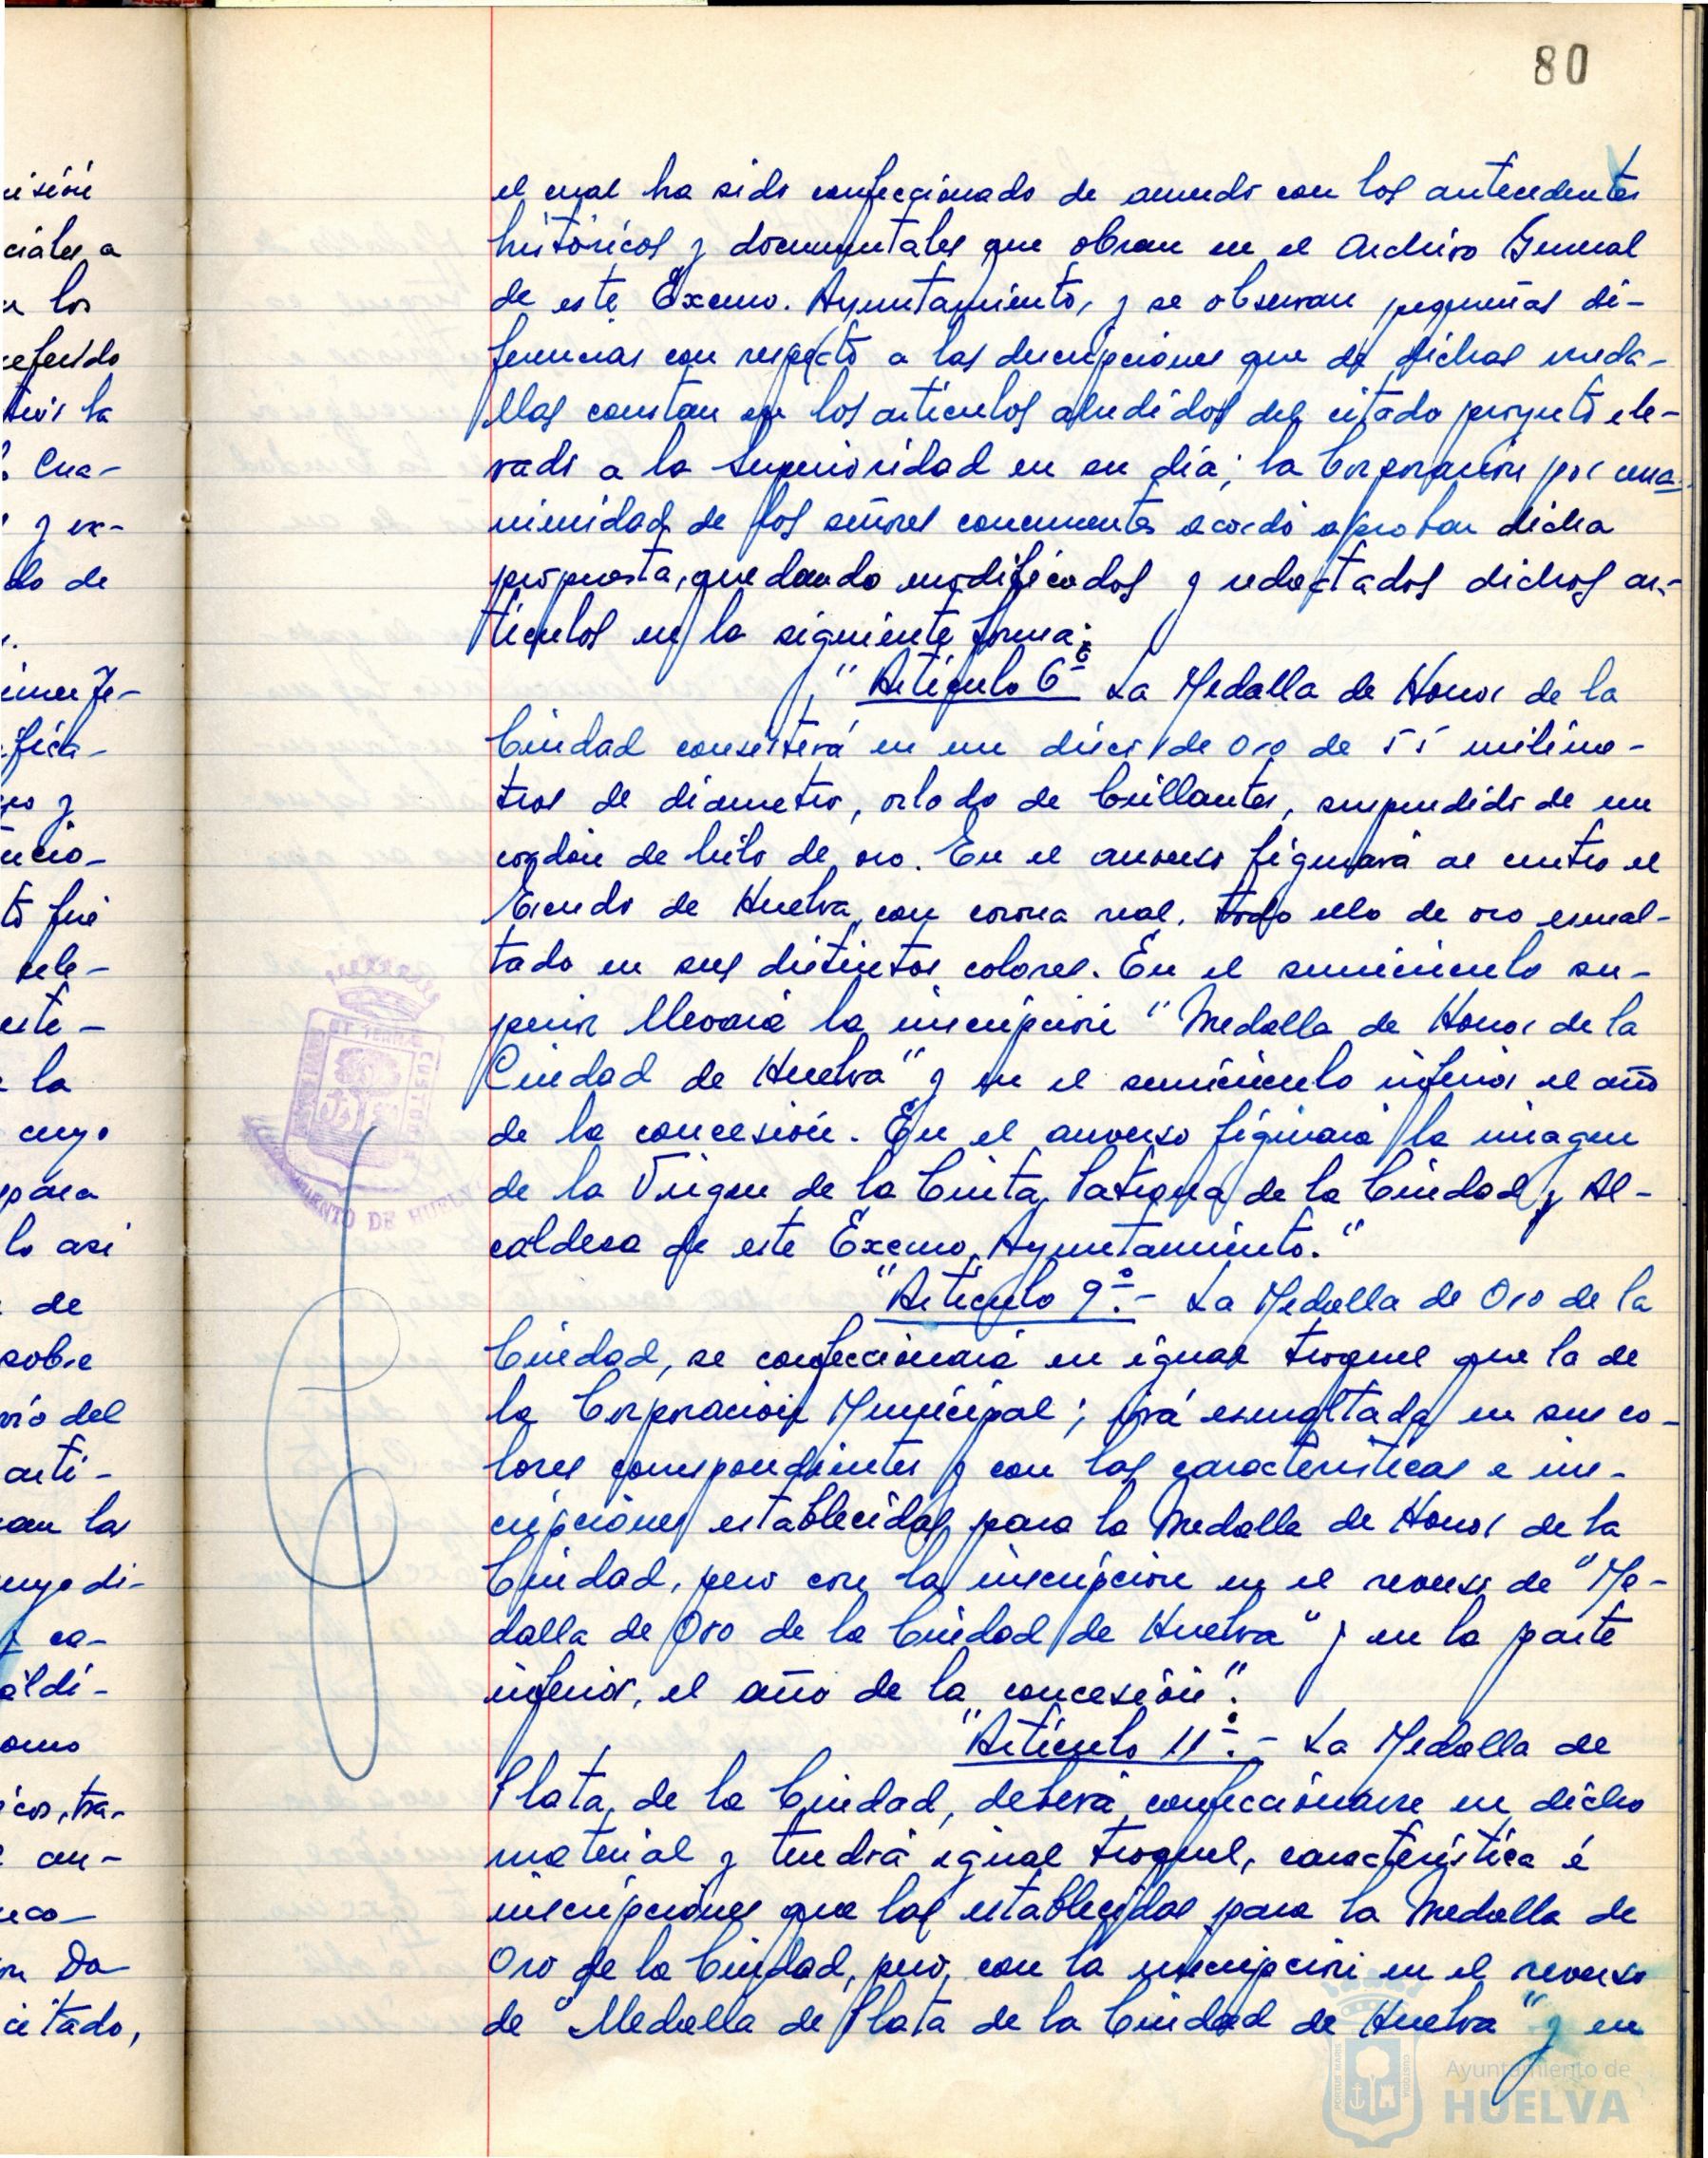 80
el cual ha sido confeccionado de acuerdo con los antecedentes
históricos y documentales que obran en el Archivo General
de este Excmo. Ayuntamiento, y se observan pequeñas di-
ferencias con respecto a las descripciones que de dichas meda-
llas constan en los artículos aludidos del citado proyecto ele-
vado a la Superioridad en su día; la Corporación por una-
nimidad de los señores concurrentes acordó aprobar dicha
propuesta, quedando modificados y redactados dichos ar-
tículos en la siguiente forma:
"Artículo 6º La Medalla de Honor de la
Ciudad consistirá en un disco de oro de 55 milíme-
tros de diametro, orlado de brillantes, suspendido de un
cordón de hilo de oro. En el anverso figurará al centro el
Escudo de Huelva con corona real, todo ello de oro esmal-
tado en sus distintos colores. En el semicirculo su-
perior llevará la inscripción "Medalla de Honor de la
Ciudad de Huelva" y en el semicirculo inferior el año
de la concesión. En el anverso figurará la imagen
de la Virgen de la Cinta, Patrona de la Ciudad y Al-
caldesa de este Excmo. Ayuntamiento."
"Artículo 9º.- La Medalla de Oro de la
Ciudad, se confeccionará en igual troquel que la de
la Corporación Municipal; irá esmaltada en sus co-
lores correspondientes y con las características e ins-
cripciones establecidas para la Medalla de Honor de la
Ciudad, pero con la inscripción en el reverso de "Me-
dalla de Oro de la Ciudad de Huelva" y en la parte
inferior, el año de la concesión".
"Artículo 11º.- La Medalla de
Plata, de la Ciudad, deberá confeccionarse en dicho
material y tendrá igual troquel, característica é
inscripciones que las establecidas para la Medalla de
Oro de la Ciudad, pero, con la inscripción en el reverso
de "Medalla de Plata de la Ciudad de Huelva" y en
Ayuntamiento de
HUELVA